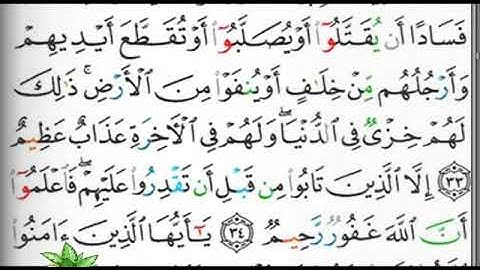 فَسَادًا أَن يُقَتَّلُوٓا۟ أَوْ يُصَلَّبُوٓا۟ أَوْ تُقَطَّعَ أَيْدِيهِمْ
وَأَرْجُلُهُم مِّنْ خِلَٰفٍ أَوْ يُنفَوْا۟ مِنَ ٱلْأَرْضِ ۚ ذَٰلِكَ
لَهُمْ خِزْىٌ فِى ٱلدُّنْيَا ۖ وَلَهُمْ فِى ٱلْءَاخِرَةِ عَذَابٌ عَظِيمٌ
٣٣ إِلَّا ٱلَّذِينَ تَابُوا۟ مِن قَبْلِ أَن تَقْدِرُوا۟ عَلَيْهِمْ ۖ فَٱعْلَمُوٓا۟
أَنَّ ٱللَّهَ غَفُورٌ رَّحِيمٌ ٣٤ يَٰٓأَيُّهَا ٱلَّذِينَ ءَامَنُوا۟